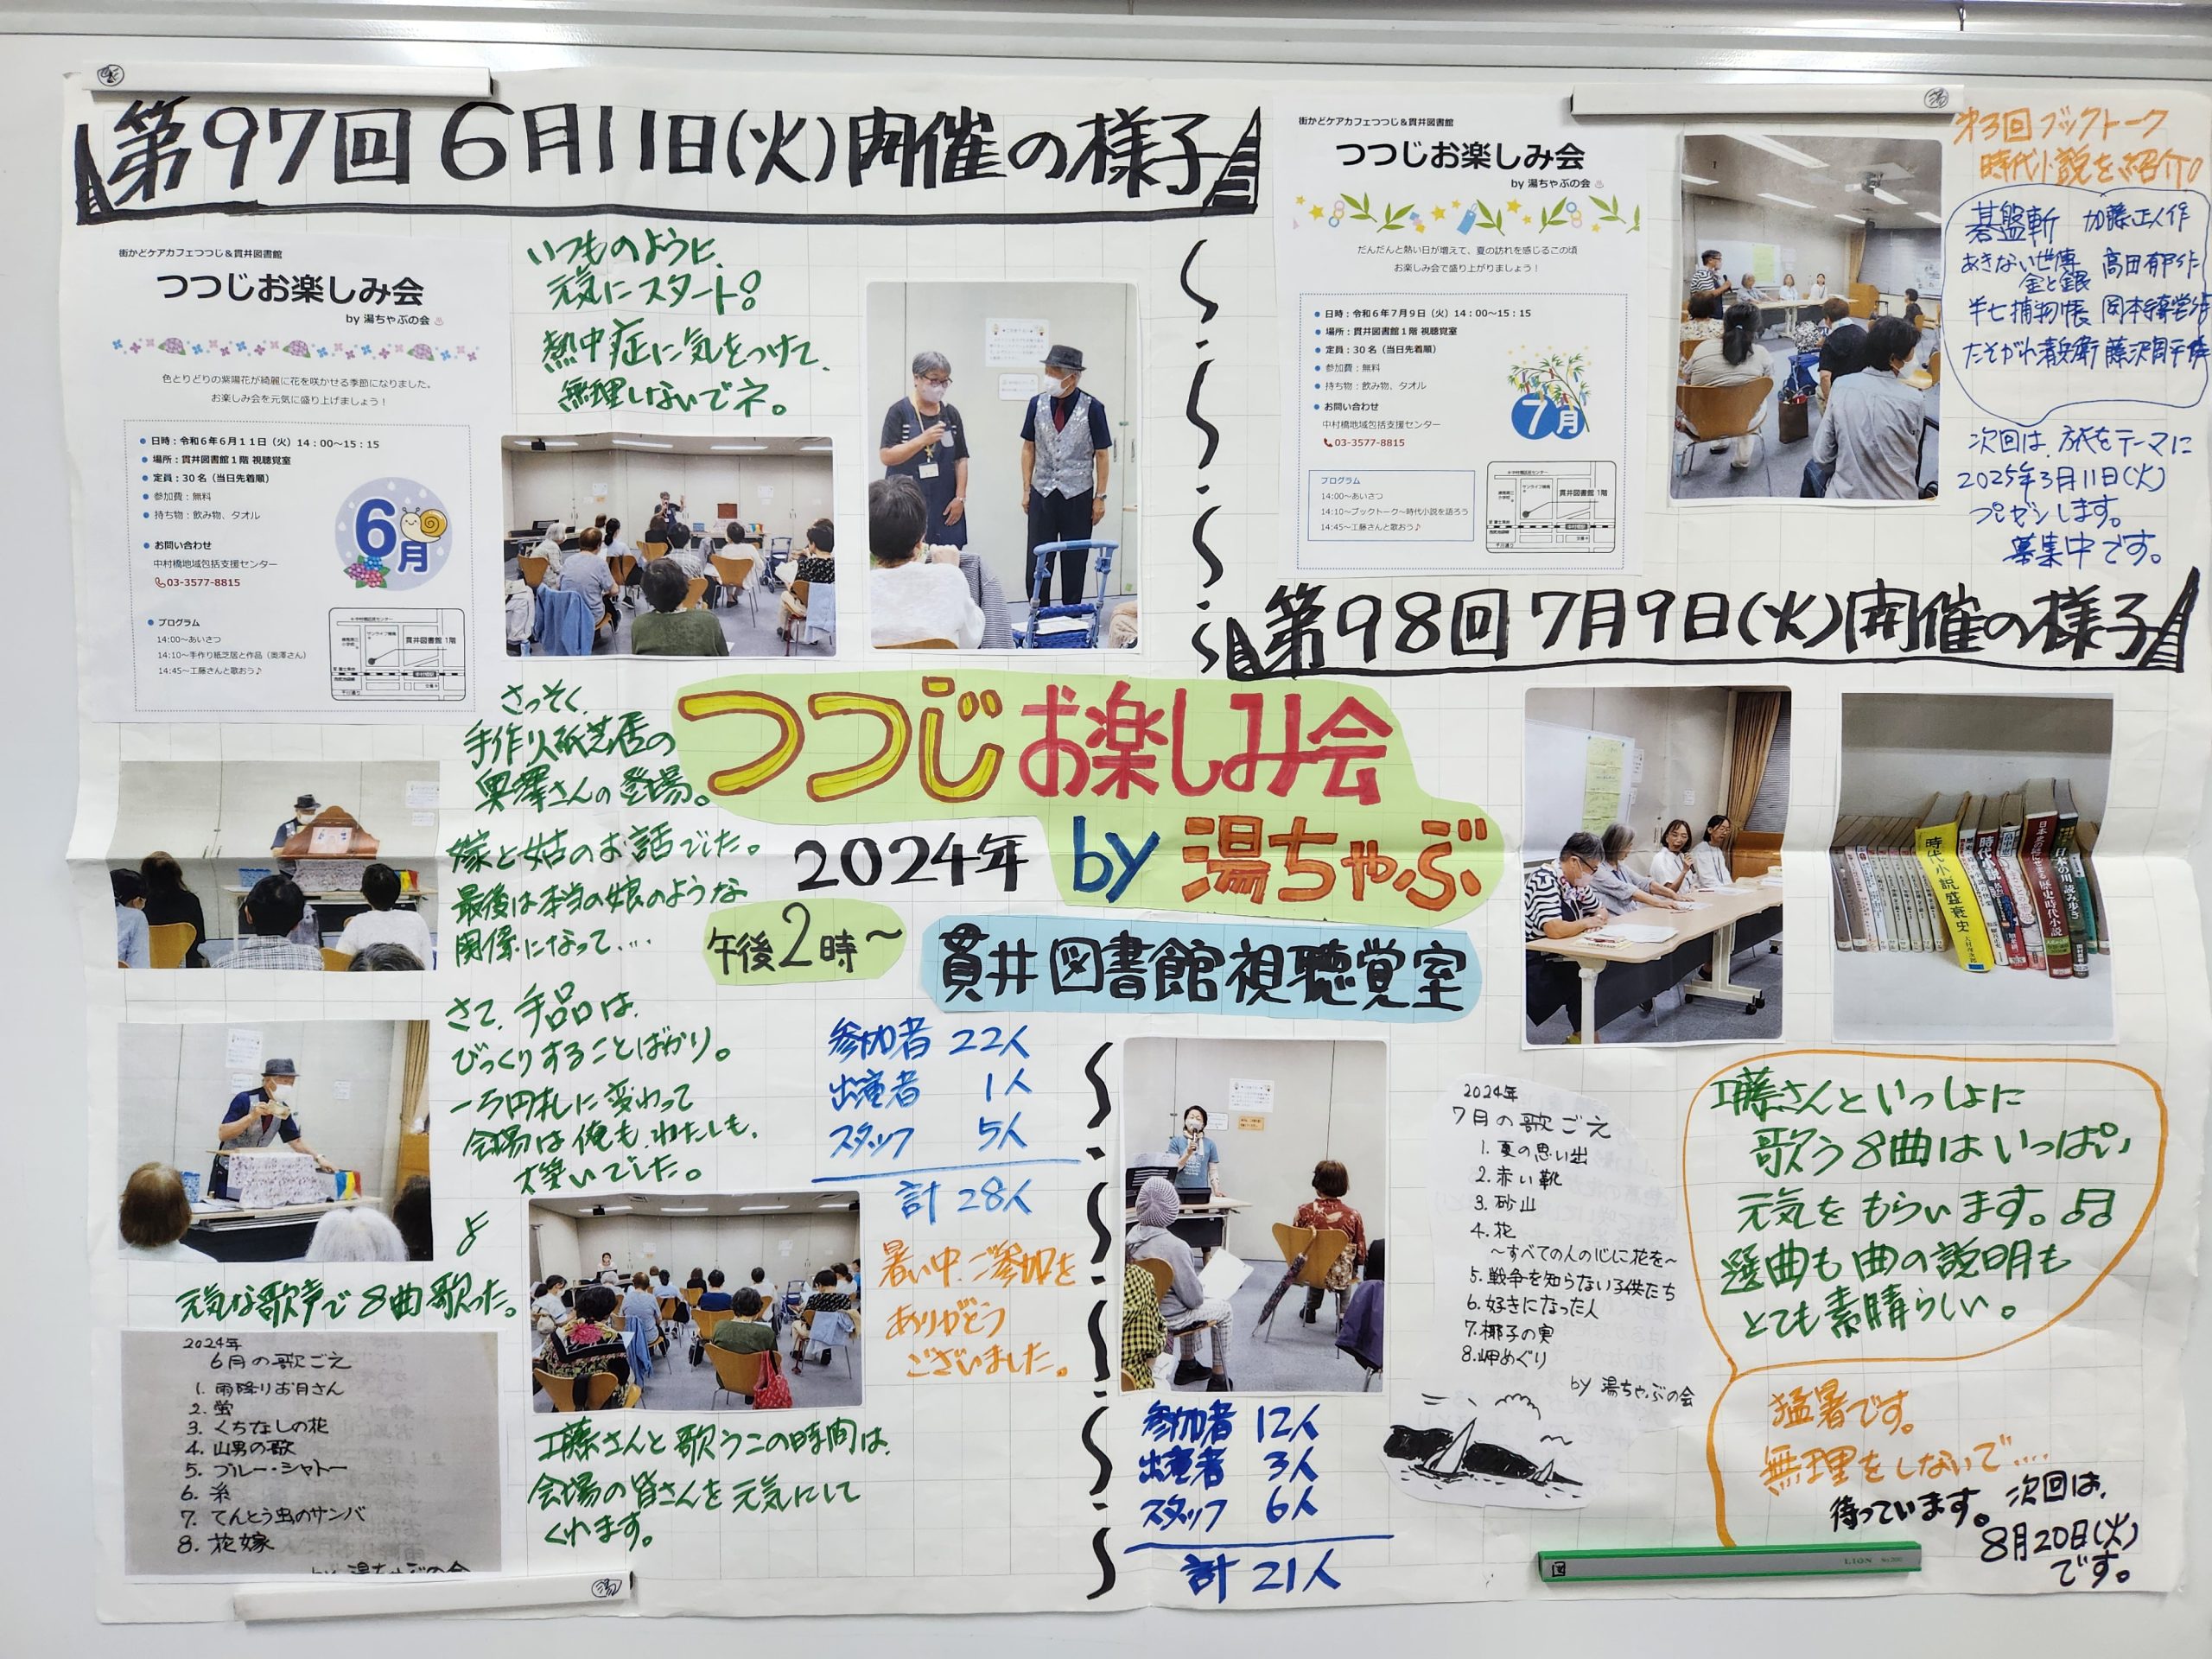 第97回 6月11日(火)開催の様子
街かどケアカフェつつじ&貫井図書館
つつじお楽しみ会
by 湯ちゃぶの会
色とりどりの紫陽花が綺麗に花を咲かせる季節になりました。
お楽しみ会を元気に盛り上げましょう！
日時：令和6年6月11日（火）14：00～15：15
場所：貫井図書館1階 視聴覚室
定員：30名（当日先着順）
参加費：無料
持ち物：飲み物、タオル
お問い合わせ
中村橋地域包括支援センター
03-3577-8815
6月
プログラム
14:00～あいさつ
14:10～手作り紙芝居と作品（奥澤さん）
14:45～工藤さんと歌おう♪
貫井図書館 1階
いつものように、
元気にスタート!
熱中症に気をつけて、
無理しないでネ。
さっそく、
手作り紙芝居の
奥澤さんの登場。
嫁と姑のお話でした。
最後は本当の娘のような
関係になって….
さて、手品は、
びっくりすることばかり。
一万円札に変わって
会場は俺も、わたしも、
大笑いでした。
元気な歌声で8曲歌った。
2024年
6月の歌ごえ
1. 雨降りお月さん
2. 蛍
3. くちなしの花
4. 山男の歌
5. ブルー・シャトー
6. 糸
7. てんとう虫のサンバ
8. 花嫁
by 湯ちゃぶの会
工藤さんと歌うこの時間は、
会場の皆さんを元気にして
くれます。
つつじお楽しみ会
2024年 by 湯ちゃぶ
午後2時～
貫井図書館視聴覚室
参加者 22人
出演者 1人
スタッフ 5人
計 28人
暑い中、ご参加を
ありがとう
ございました。
街かどケアカフェつつじ&貫井図書館
つつじお楽しみ会
by 湯ちゃぶの会
だんだんと熱い日が増えて、夏の訪れを感じるこの頃
お楽しみ会で盛り上がりましょう！
日時：令和6年7月9日（火）14：00～15：15
場所：貫井図書館1階 視聴覚室
定員：30名（当日先着順）
参加費：無料
持ち物：飲み物、タオル
お問い合わせ
中村橋地域包括支援センター
03-3577-8815
7月
プログラム
14:00～あいさつ
14:10～ブックトーク～時代小説を語ろう
14:45～工藤さんと歌おう♪
貫井図書館 1階
第3回ブックトーク
時代小説を紹介
碁盤斬 加藤正人作
あきない世傳 金と銀 高田郁作
半七捕物帳 岡本綺堂作
たそがれ清兵衛 藤沢周平作
次回は、旅をテーマに
2025年3月11日(火)
プレゼンします。
募集中です。
第98回 7月9日(火)開催の様子
時代小説盛衰史
参加者 12人
出演者 3人
スタッフ 6人
計 21人
2024年
7月の歌ごえ
1. 夏の思い出
2. 赤い靴
3. 砂山
4. 花
～すべての人の心に花を～
5. 戦争を知らない子供たち
6. 好きになった人
7. 椰子の実
8. 岬めぐり
by 湯ちゃぶの会
工藤さんといっしょに
歌う8曲はいっぱい
元気をもらいます。
選曲も曲の説明も
とても素晴らしい。
猛暑です。
無理をしないで….
待っています。
次回は、
8月20日(火)
です。
LION